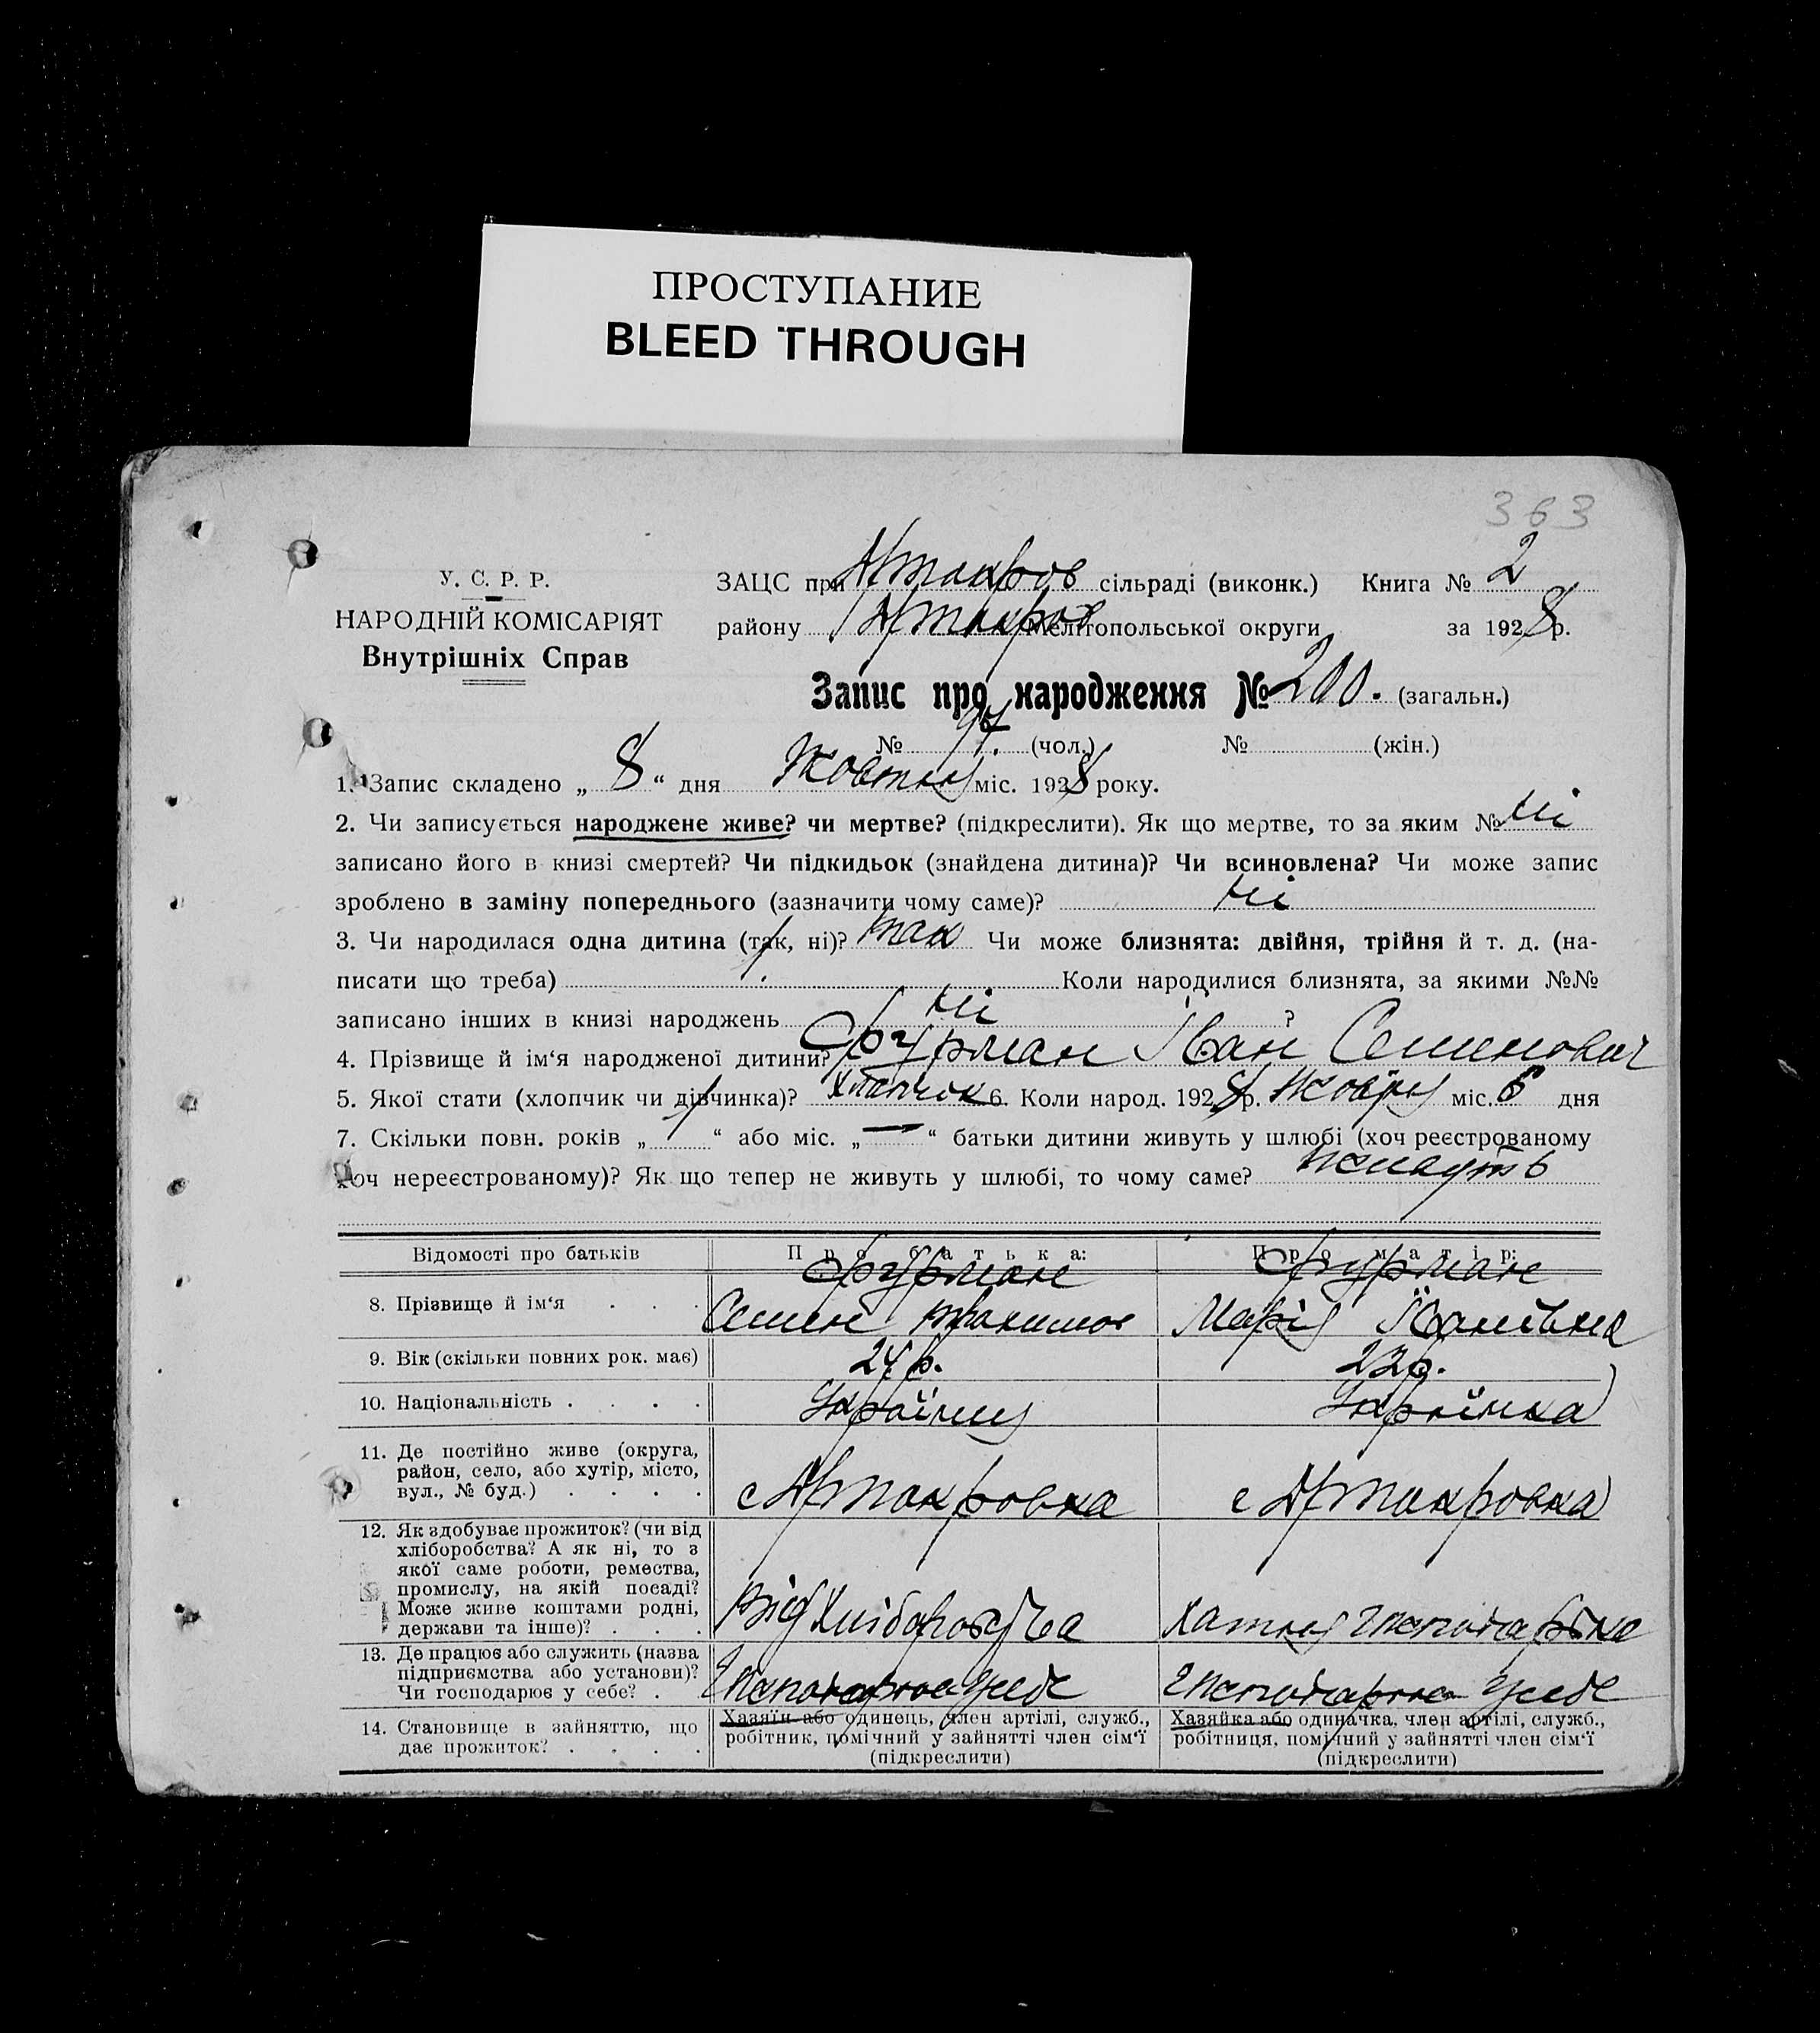 ПРОСТУПАНИЕ
BLEED THROUGH
363
У. С. Р. Р.
НАРОДНІЙ КОМІСАРІЯТ
Внутрішніх Справ
ЗАЦС при сільраді (виконк.) Книга № 2
району Мелітопольської округи за 1928 р.
Запис про народження № 200. (загальн.)
№ 97. (чол.) № (жін.)
1. Запис складено „ 8 “ дня Жовтня міс. 1928 року.
2. Чи записується народжене живе? чи мертве? (підкреслити). Як що мертве, то за яким № Ні
записано його в книзі смертей? Чи підкидьок (знайдена дитина)? Чи всиновлена? Чи може запис
зроблено в заміну попереднього (зазначити чому саме)? Ні
3. Чи народилася одна дитина (так, ні)? так Чи може близнята: двійня, трійня й т. д. (на-
писати що треба) Коли народилися близнята, за якими №№
записано інших в книзі народжень Ні ?
4. Прізвище й ім‘я народженої дитини? Фурман Іван Семенович
5. Якої стати (хлопчик чи дівчинка)? хлопчик 6. Коли народ. 1928 р. Жовтня міс. 6 дня
7. Скільки повн. років „ “ або міс. „ — “ батьки дитини живуть у шлюбі (хоч реєстрованому
хоч нереєстрованому)? Як що тепер не живуть у шлюбі, то чому саме? живуть
Відомості про батьків Про батька: Про матір:
8. Прізвище й ім‘я Фурман Семен Фурман Марія Іванівна
9. Вік (скільки повних рок. має) 24 р. 23 р.
10. Національність Українець Українка
11. Де постійно живе (округа,
район, село, або хутір, місто,
вул., № буд.)
12. Як здобуває прожиток? (чи від
хліборобства? А як ні, то з
якої саме роботи, ремества,
промислу, на якій посаді?
Може живе коштами родні,
держави та інше)? Від Хліборобства хатня господарька
13. Де працює або служить (назва
підприємства або установи)?
Чи господарює у себе? Господарює у себе Господарює у себе
14. Становище в зайняттю, що
дає прожиток?
Хазяїн або одинець, член артілі, служб.,
робітник, помічний у зайнятті член сім‘ї
(підкреслити)
Хазяйка або одиначка, член артілі, служб.,
робітниця, помічний у зайнятті член сім‘ї
(підкреслити)